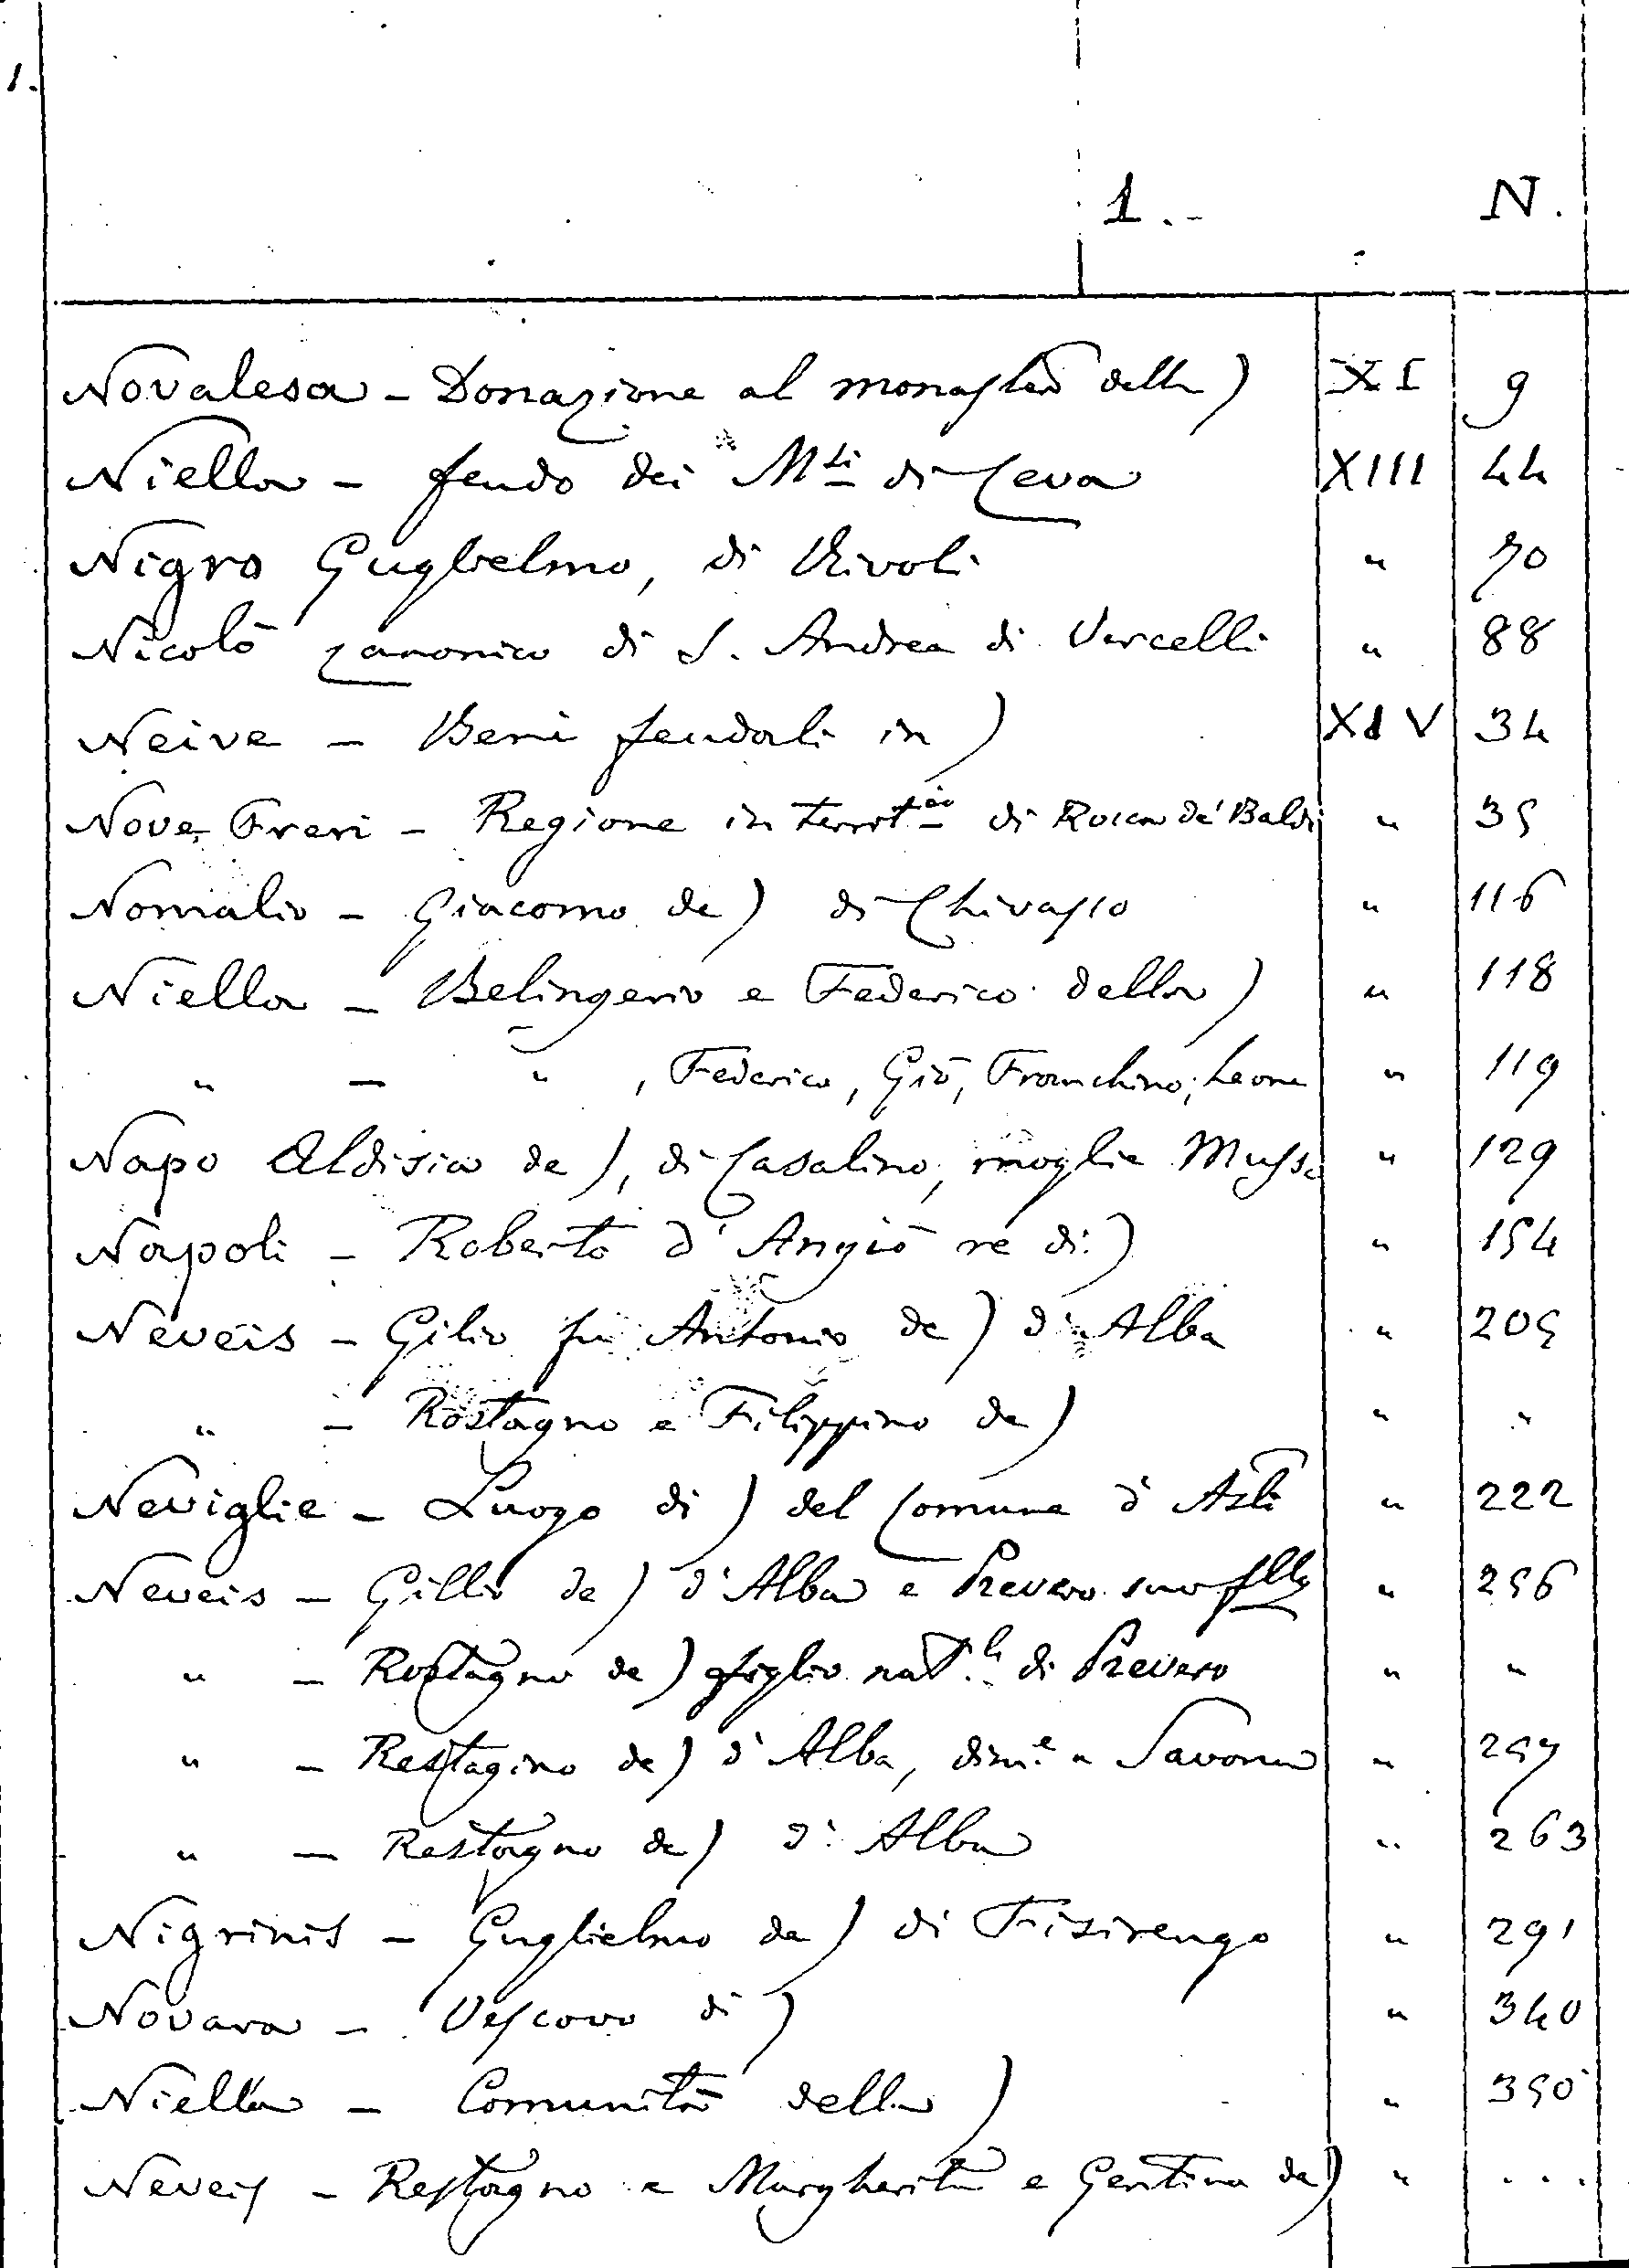 1.
1.- N.
Novalesa - Donazione al monastero della) XI 9
Niella - feudo dei M.si di Ceva XIII 44
Nigro Guglielmo, di Rivoli " 70
Nicolò canonico di S. Andrea di Vercelli " 88
Neive - Beni feudali in) XIV 34
Nove Freri - Regione in territ.io di Rocca de' Baldi " 35
Nomalio - Giacomo de) di Chivasso " 116
Niella - Belingerio e Federico della) " 118
" - " , Federico, Giò, Franchino, Leone " 119
Napo Aldisia de), di Casalino, moglie Musso " 129
Napoli - Roberto d'Angiò re di) " 154
Neveis - Gilio fu Antonio de) d'Alba " 205
" - Rostagno e Filippino de) " "
Neviglie - Luogo di) del Comune d'Asti " 222
Neveis - Gillio de) d'Alba e Prevero suo flli " 256
" - Rostagno de) figlio nat.le di Prevero " "
" - Restagino de) d'Alba, dim.e a Savona " 257
" - Restagno de) d'Alba " 263
Nigrinis - Guglielmo de) di Fisirengo " 291
Novara - Vescovo di) " 340
Niella - Comunità della) " 350
Neveis - Restagno e Margherita e Gentina de) " ...